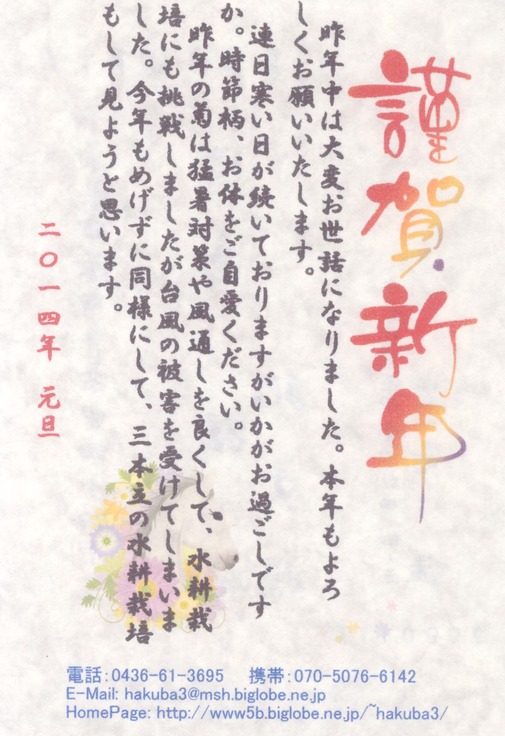 謹賀新年
昨年中は大変お世話になりました。本年もよろ
しくお願いいたします。
連日寒い日が続いておりますがいかがお過ごしです
か。時節柄、お体をご自愛ください。
昨年の菊は猛暑対策や風通しを良くして、水耕栽
培にも挑戦しましたが台風の被害を受けてしまいま
した。今年もめげずに同様にして、三本立の水耕栽培
もして見ようと思います。
二〇一四年 元旦
電話:0436-61-3695 携帯:070-5076-6142
E-Mail: hakuba3@msh.biglobe.ne.jp
HomePage: http://www5b.biglobe.ne.jp/~hakuba3/